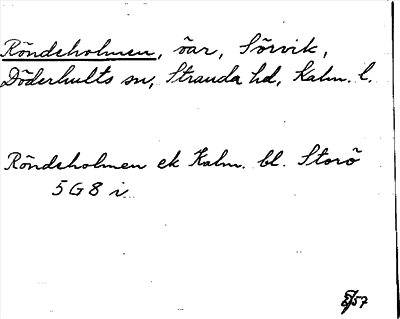 Röndsholmen, öar, Sörvik,
Döderhults sn, Stranda hd, Kalm. l.
Röndsholmen ek Kalm. bl. Storö
5 G 8 i
57